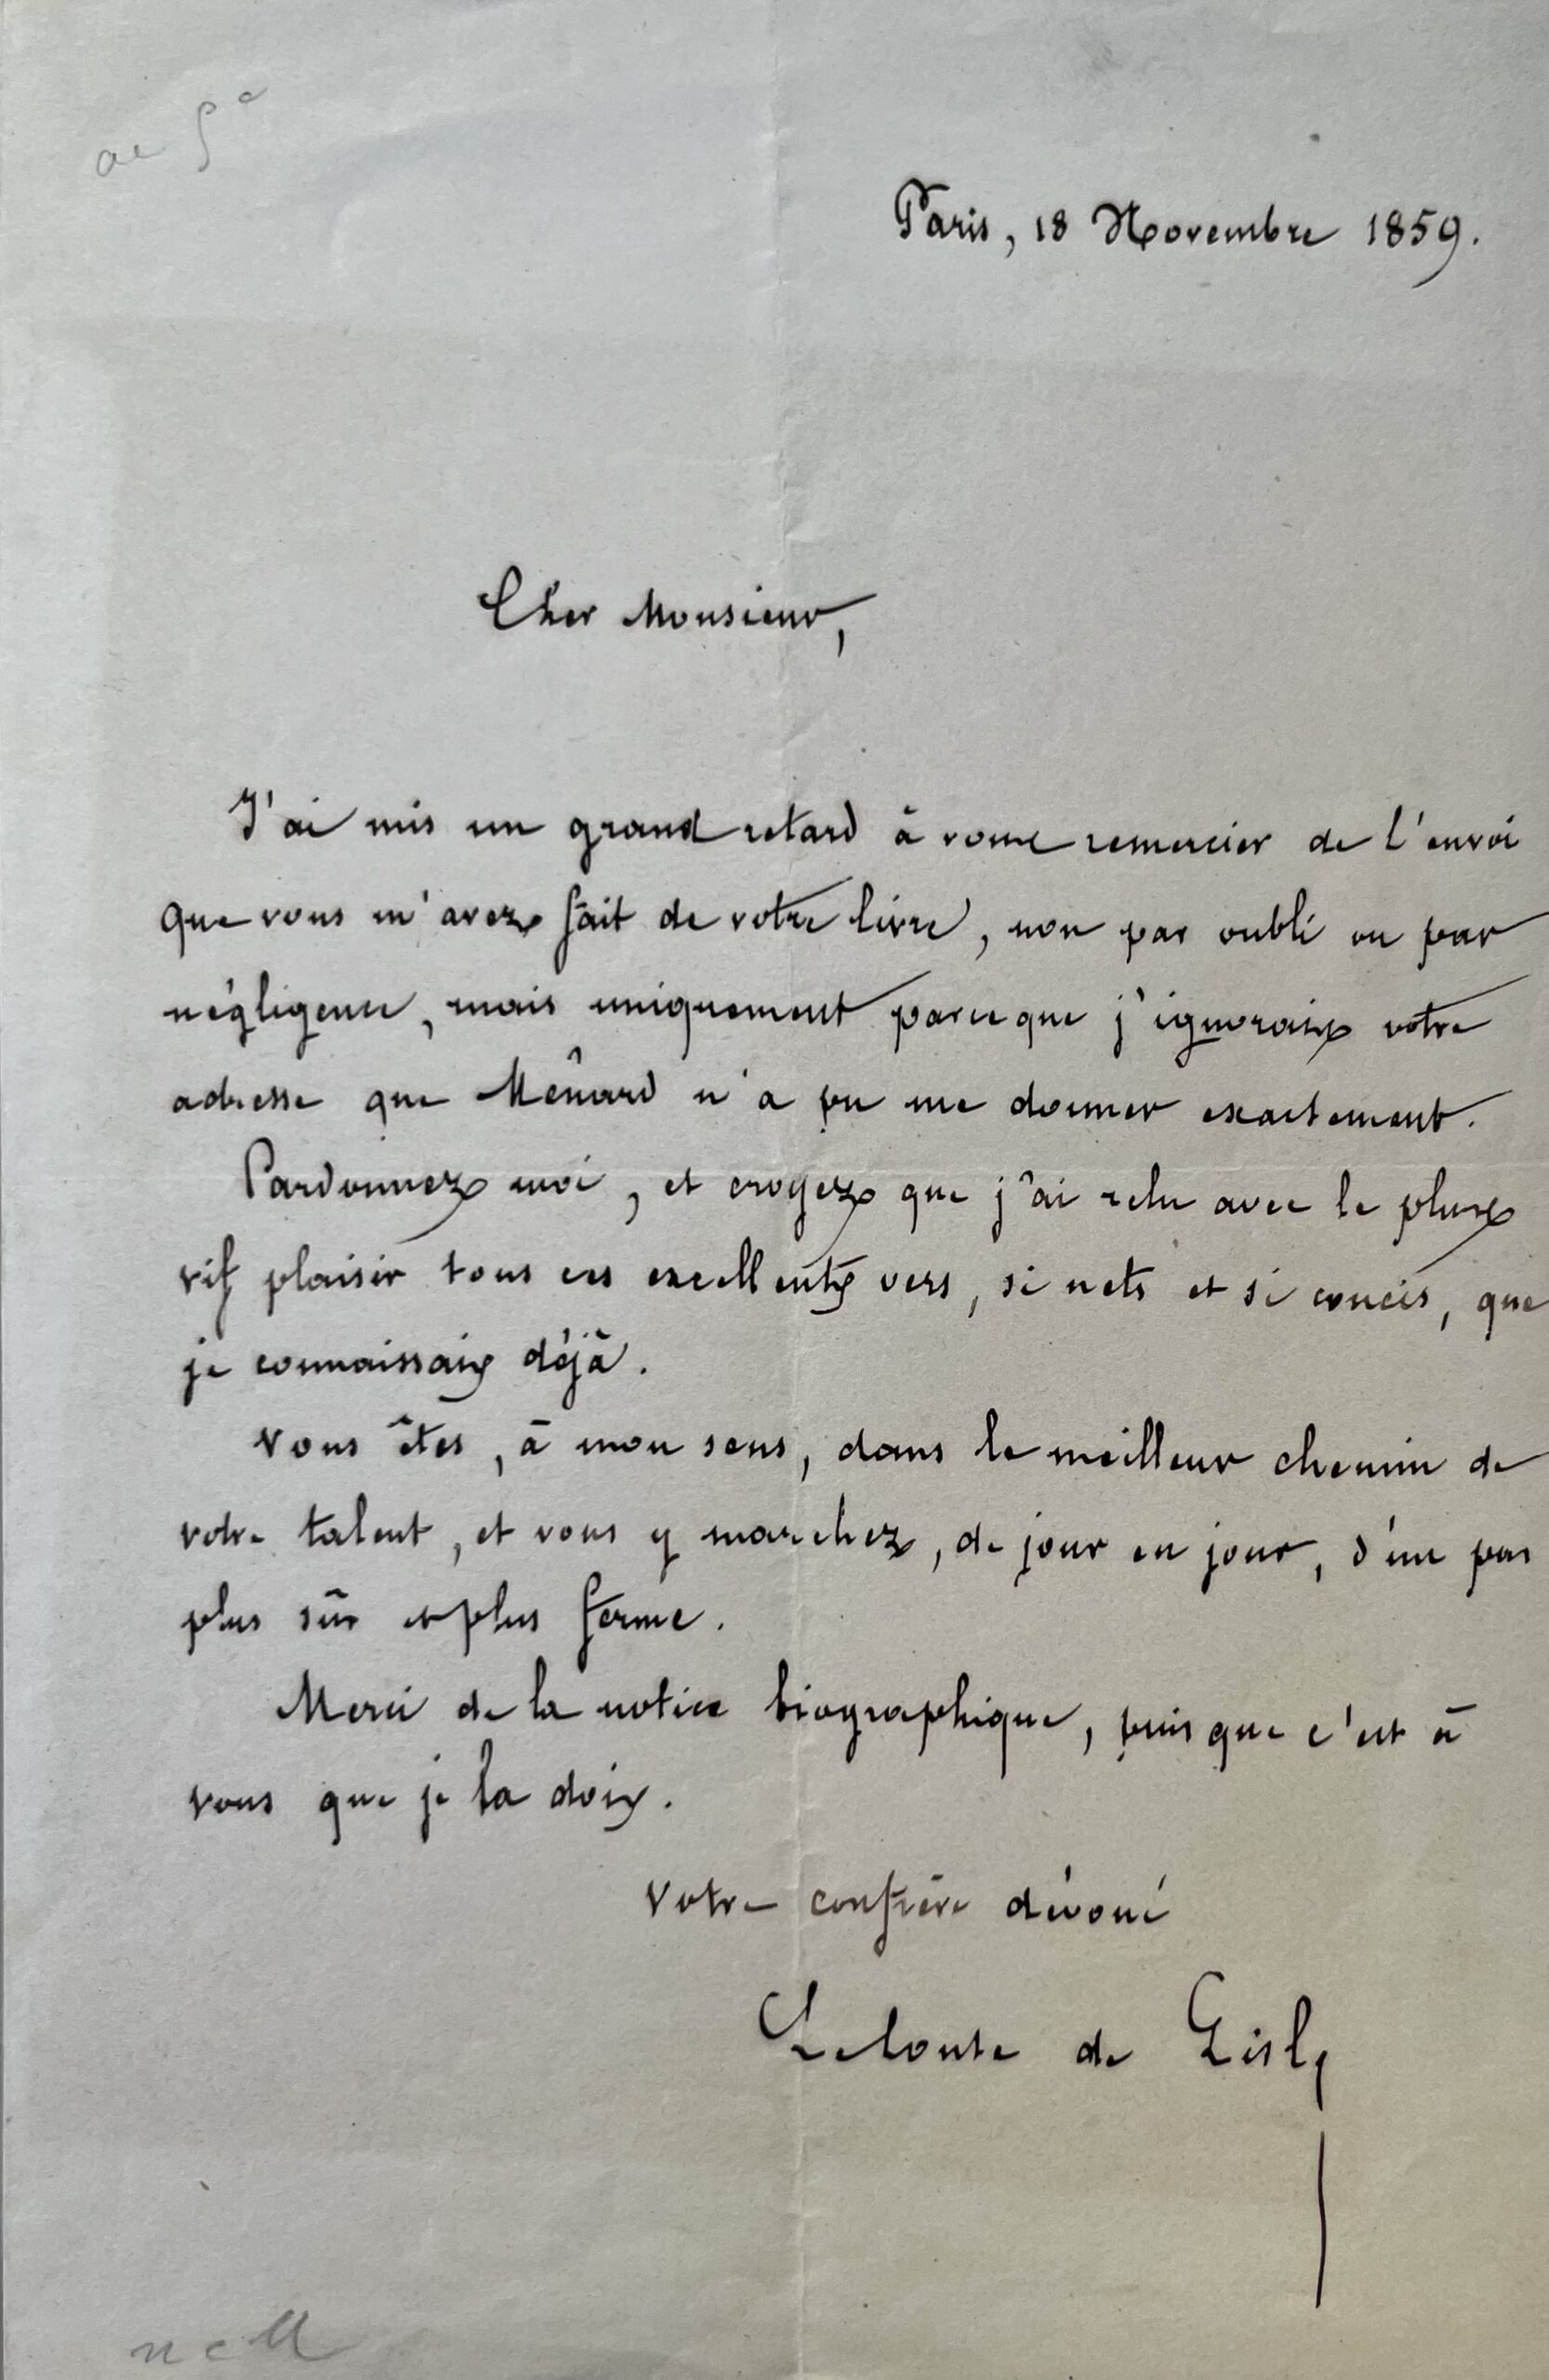 Paris, 18 Novembre 1859.
Cher Monsieur,
J'ai mis un grand retard à vous remercier de l'envoi
que vous m'avez fait de votre livre, non par oubli ou par
négligence, mais uniquement parceque j'ignorais votre
adresse que Ménard n'a pu me donner exactement.
Pardonnez moi, et croyez que j'ai relu avec le plus
vif plaisir tous ces excellents vers, si nets et si concis, que
je connaissais déjà.
Vous êtes, à mon sens, dans le meilleur chemin de
votre talent, et vous y marchez, de jour en jour, d'un pas
plus sûr et plus ferme.
Merci de la notice biographique, puis que c'est à
vous que je la dois.
Votre confrère dévoué
Leconte de Lisle